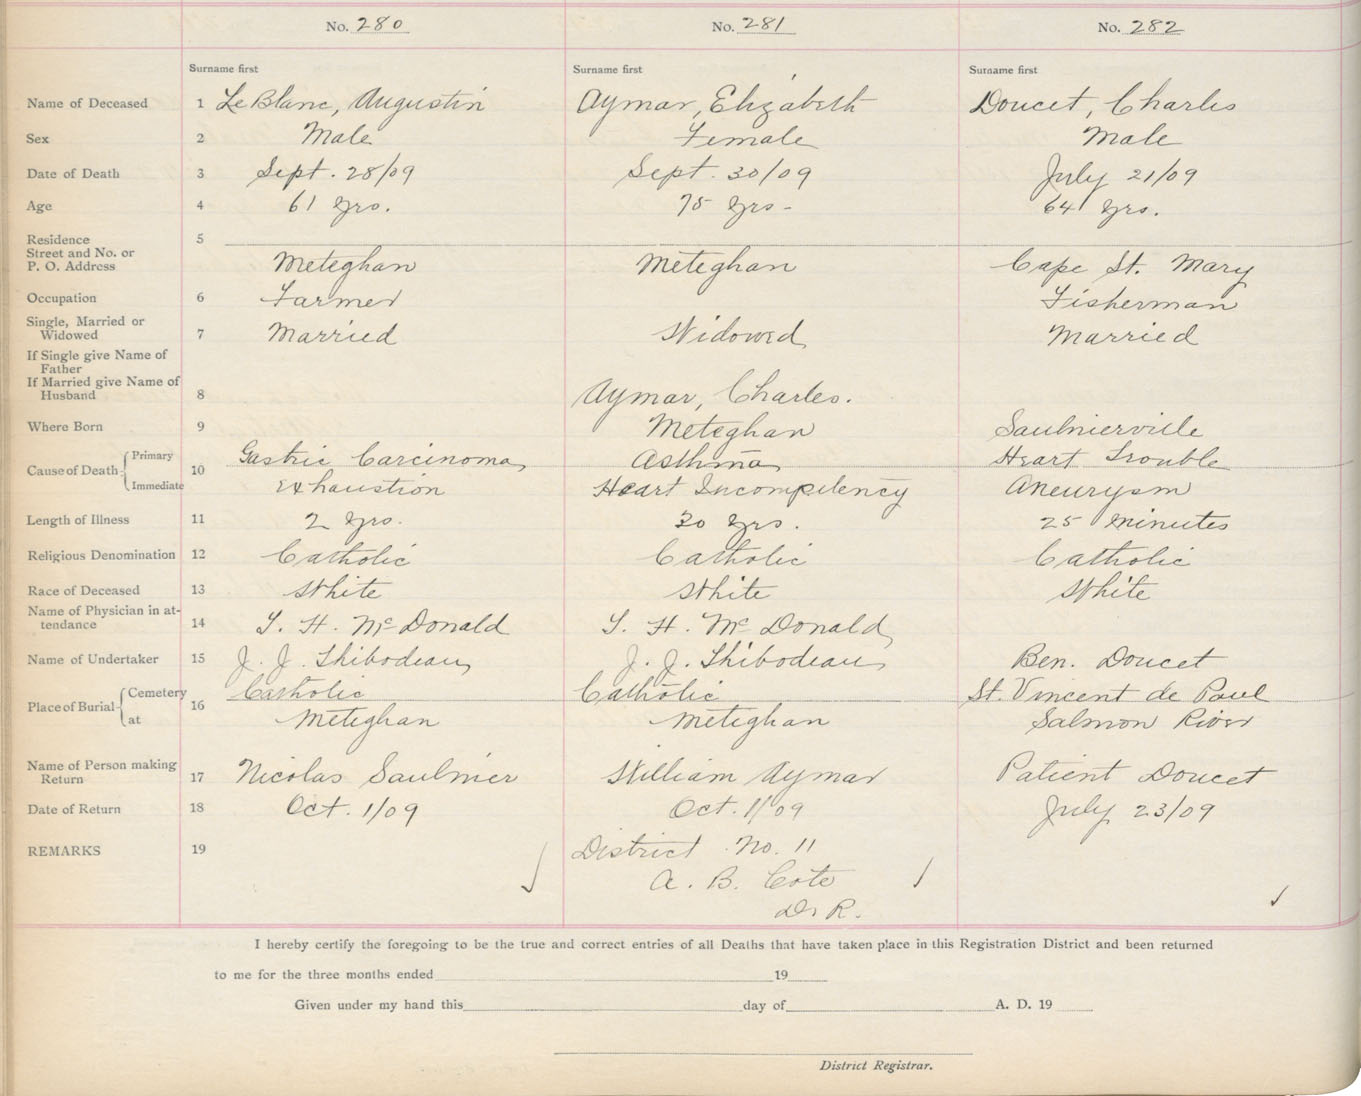 No. 280 No. 281 No. 282
Surname first Surname first Surname first
Name of Deceased 1 LeBlanc, Augustin Aymar, Elizabeth Doucet, Charles
Sex 2 Male Female Male
Date of Death 3 Sept. 28/09 Sept. 30/09 July 21/09
Age 4 61 yrs. 75 yrs- 64 yrs.
Residence 5
Street and No. or
P. O. Address Meteghan Meteghan Cape St. Mary
Occupation 6 Farmer Fisherman
Single, Married or
Widowed 7 Married Widowed Married
If Single give Name of
Father
If Married give Name of
Husband 8 Aymar, Charles.
Where Born 9 Meteghan Saulnierville
Cause of Death Primary 10 Gastric Carcinoma Asthma Heart Trouble
Immediate Exhaustion Heart Incompetency Aneurysm
Length of Illness 11 2 yrs. 30 yrs. 25 minutes
Religious Denomination 12 Catholic Catholic Catholic
Race of Deceased 13 White White White
Name of Physician in at-
tendance 14 T. H. McDonald T. H. McDonald
Name of Undertaker 15 J. J. Thibodeau J. J. Thibodeau Ben. Doucet
Place of Burial Cemetery 16 Catholic Catholic St. Vincent de Paul
at Meteghan Meteghan Salmon River
Name of Person making
Return 17 Nicolas Saulnier William Aymar Patient Doucet
Date of Return 18 Oct. 1/09 Oct. 1/09 July 23/09
REMARKS 19 District No. 11
A. B. Cote
D. R.
I hereby certify the foregoing to be the true and correct entries of all Deaths that have taken place in this Registration District and been returned
to me for the three months ended 19
Given under my hand this day of A. D. 19
District Registrar.